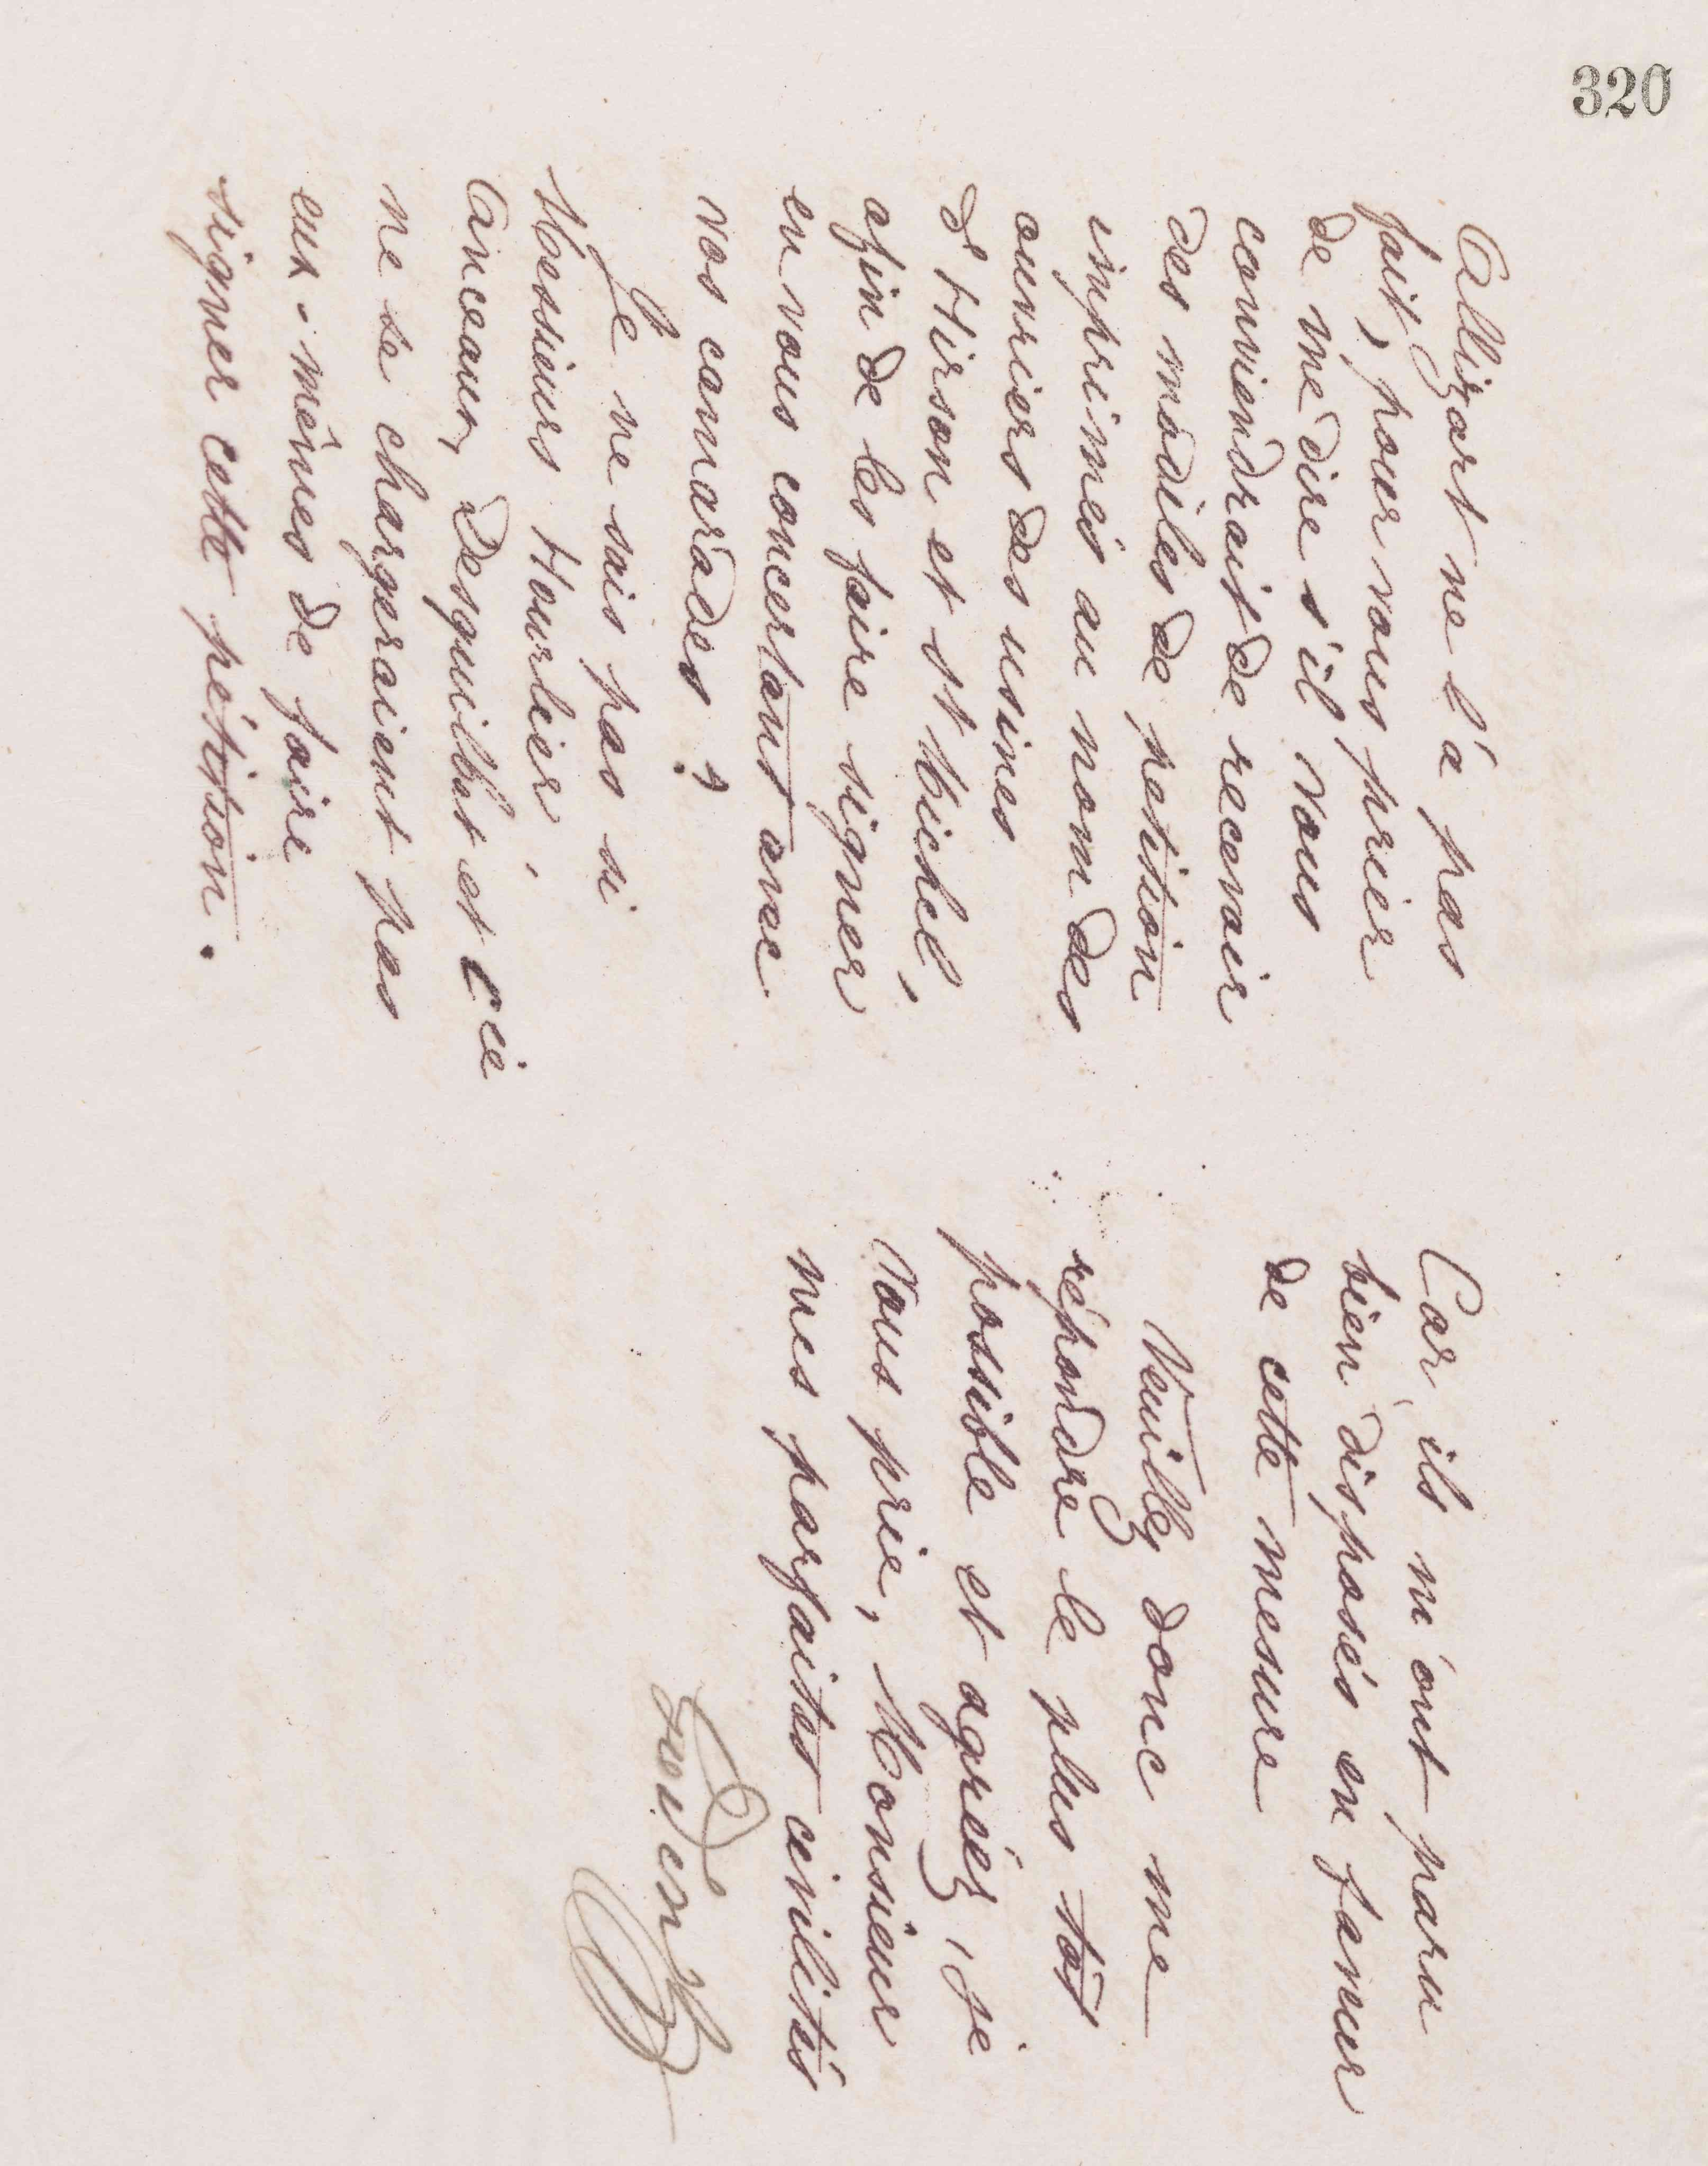 320
Allizart ne l'a pas
fait, pour vous prier
de me dire s'il vous
conviendrait de recevoir
des modèles de pétition
imprimés au nom des
ouvriers des usines
d'Hirson et St Michel,
afin de les faire signer
en vous concertant avec
vos camarades ?
Je ne sais pas si
Messieurs Hourlier,
Anceaux, Desquilbet et Cie
ne se chargeraient pas
eux-mêmes de faire
signer cette pétition.
Car ils m'ont paru
bien disposés en faveur
de cette mesure
Veuillez donc me
répondre le plus tôt
possible et agréez, je
vous prie, Monsieur
mes parfaites civilités
Godin